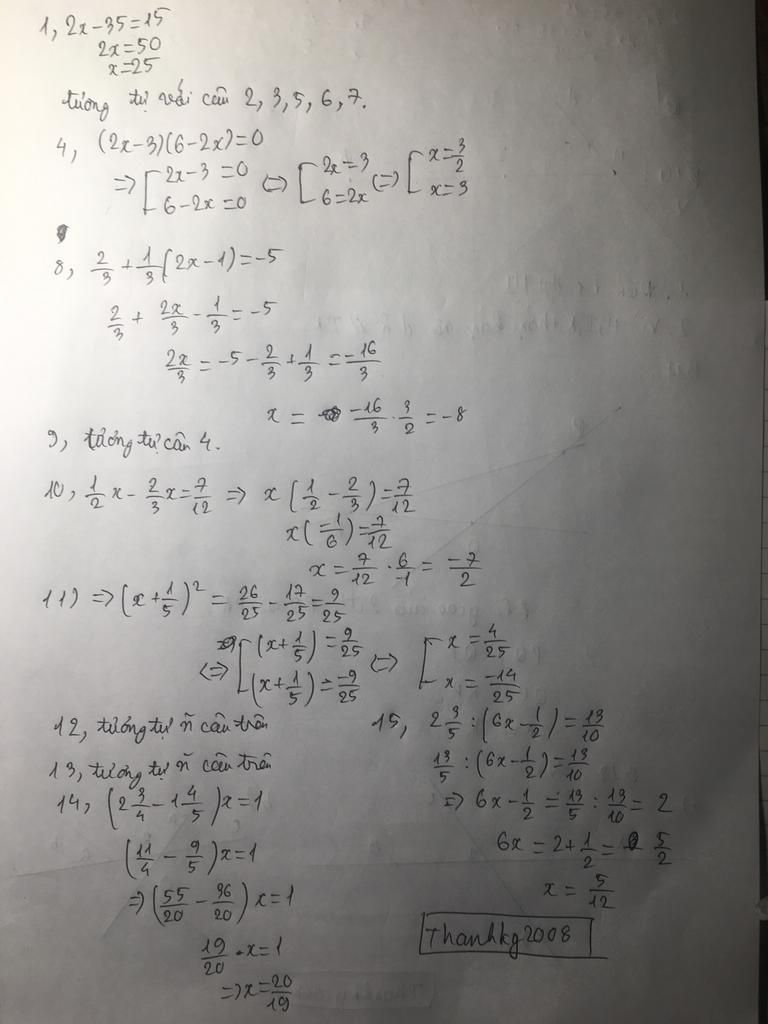 1, 2x - 35 = 15
2x = 50
x = 25
tương tự với câu 2, 3, 5, 6, 7.
4, (2x - 3)(6 - 2x) = 0
=> [ 2x - 3 = 0 <=> [ 2x = 3 <=> [ x = 3/2
6 - 2x = 0 6 = 2x x = 3
8, 2/3 + 1/3 (2x - 1) = -5
2/3 + 2x/3 - 1/3 = -5
2x/3 = -5 - 2/3 + 1/3 = -16/3
x = -16/3 . 3/2 = -8
9, tương tự câu 4.
10, 1/2 x - 2/3 x = 7/12 => x (1/2 - 2/3) = 7/12
x (-1/6) = 7/12
x = 7/12 . 6/-1 = -7/2
11) => (x + 1/5)² = 26/25 - 17/25 = 9/25
<=> [ (x + 1/5) = 9/25 <=> [ x = 4/25
(x + 1/5) = -9/25 x = -14/25
12, tương tự ñ câu trên
13, tương tự ñ câu trên
14, (2 3/4 - 1 4/5) x = 1
(11/4 - 9/5) x = 1
=> (55/20 - 36/20) x = 1
19/20 . x = 1
=> x = 20/19
15, 2 3/5 : (6x - 1/2) = 13/10
13/5 : (6x - 1/2) = 13/10
=> 6x - 1/2 = 13/5 : 13/10 = 2
6x = 2 + 1/2 = 5/2
x = 5/12
Thanhkg2008